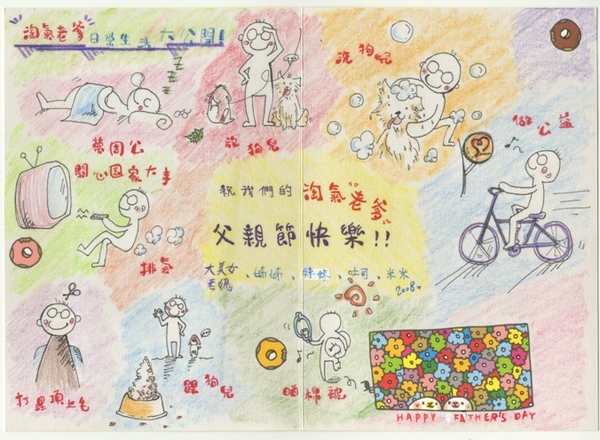 淘氣老爹日常生活大公開!
ZZZZ
夢周公
関心国家大事
排氣
狗兒
洗狗兒
做公益
祝我們的淘氣老爹
父親節快樂!!
大美女老媽、姊姊、妹妹、吐司、米米
2008
頂上毛
餵狗兒
曬棉被
HAPPY FATHER'S DAY